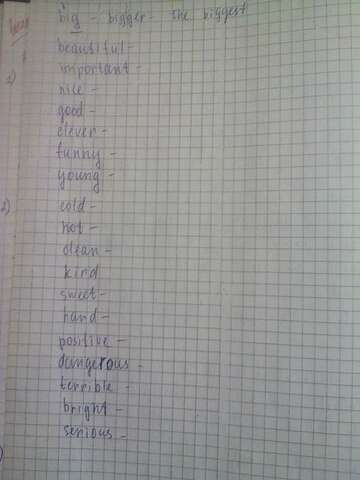 big - bigger - the biggest
beautiful -
important -
nice -
good -
clever -
funny -
young -
2) cold -
hot -
clean -
kind
sweet -
hard -
positive -
dangerous -
terrible -
bright -
serious -